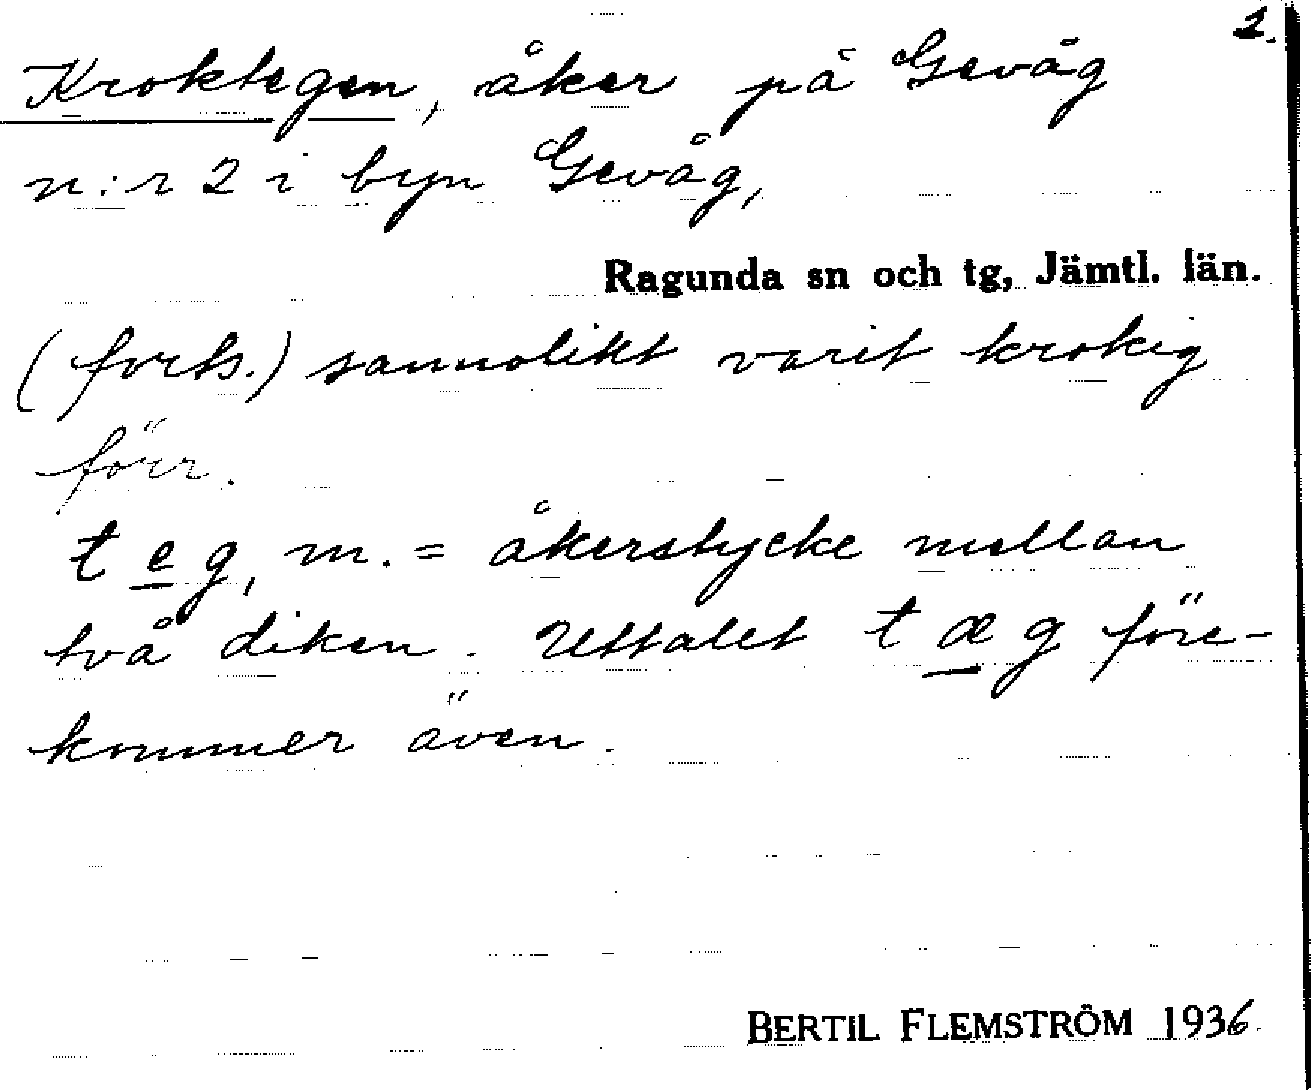 2.
Kroktegen, åker på Gevåg
n:r 2 i byn Gevåg,
Ragunda sn och tg, Jämtl. län.
(forts.) sannolikt varit krokig
förr.
teg, m. = åkerstycke mellan
två diken. Uttalet tæg före-
kommer även.
BERTIL FLEMSTRÖM 1936